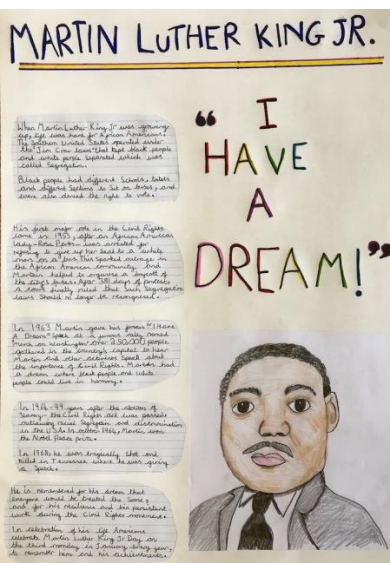 MARTIN LUTHER KING JR.
"I
HAVE
A
DREAM!"
When Martin Luther King Jr was growing
up, life was hard for African Americans.
The Southern United States operated under
the "Jim Crow laws" that kept black people
and white people separated which was
called Segregation.
Black people had different Schools, toilets
and different Sections to Sit on buses, and
were also denied the right to vote.
His first major role in the Civil Rights
came in 1955, after an African American
lady - Rosa Parks - was arrested for
refusing to give up her seat to a white
man on a bus. This sparked outrage in
the African American community, and
Martin helped to organise a boycott of
the city's buses. After 381 days of protests
a court finally ruled that such Segregation
laws should no longer be recognised.
In 1963 Martin gave his famous "I Have
A Dream" Speech at a rally named
March on Washington. Over 250,000 people
gathered in the country's capital to hear
Martin and other activists Speak about
the importance of Civil Rights. Martin had
a dream, where black people and white
people could live in harmony.
In 1964 - 99 years after the abolition of
Slavery - the Civil Rights act was passed
outlawing racial Segregation and discrimination
in the U.S.A. In october 1964, Martin won
the Nobel Peace prize.
In 1968, he was tragically Shot and
killed in Tennessee where he was giving
a Speech.
He is remembered for his dream that
everyone would be treated the Same,
and for his resilience and his persistent
work during the Civil Rights movement.
In celebration of his life Americans
celebrate Martin Luther King Jr Day on
the third monday in January every year,
to remember him and his achievements.